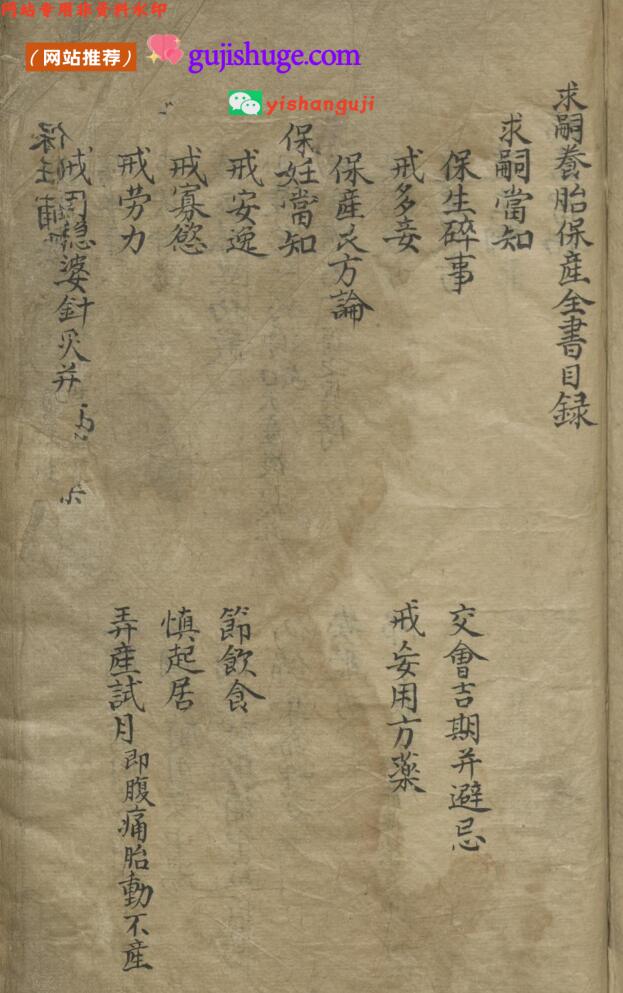 网站专用非资料水印
（网站推荐）
gujishuge.com
yishanguji
求嗣養胎保産全書目録
求嗣當知
保生碎事
交會吉期并避忌
戒多妾
戒妄用方藥
保産氏方論
保妊當知
戒安逸
節飲食
戒寡慾
慎起居
戒劳力
弄産試月即腹痛胎動不産
戒用穏婆針灸并